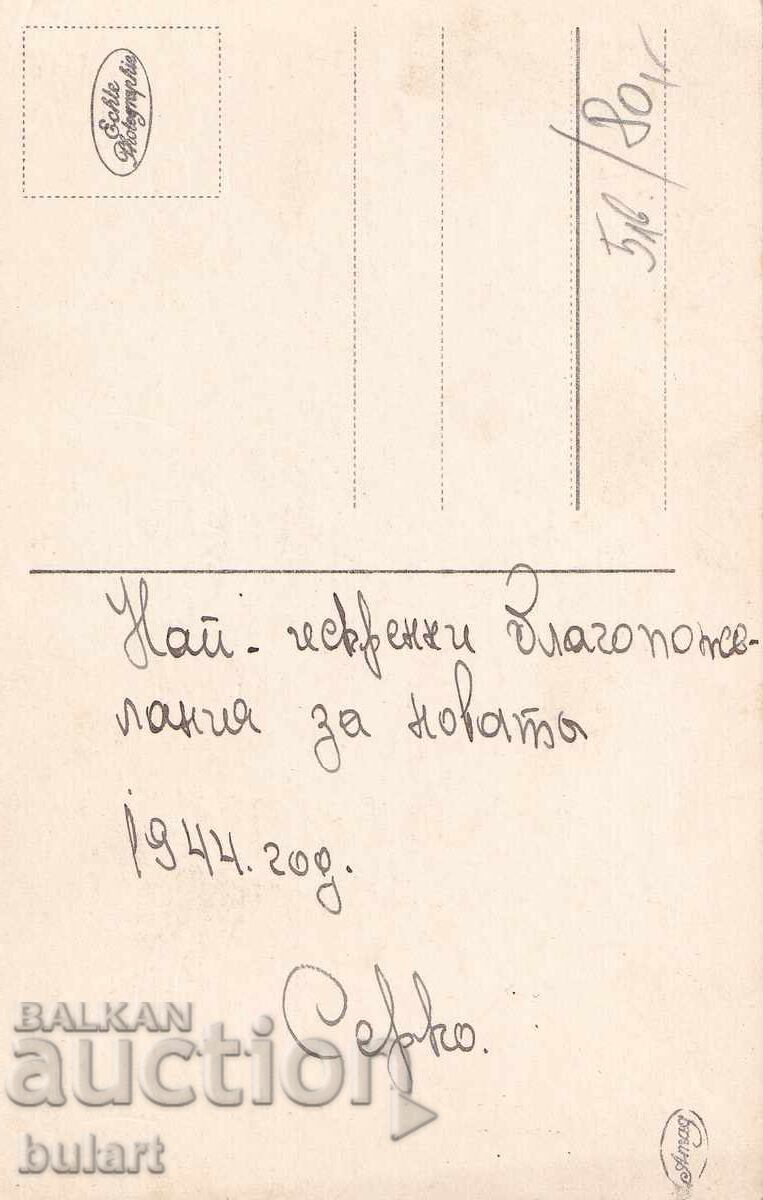 Echte
Photographie
5лв./80,
Най-искренни благопоже-
лания за новата
1944. год.
Серко.
BALKAN
auction
bulart
Amag